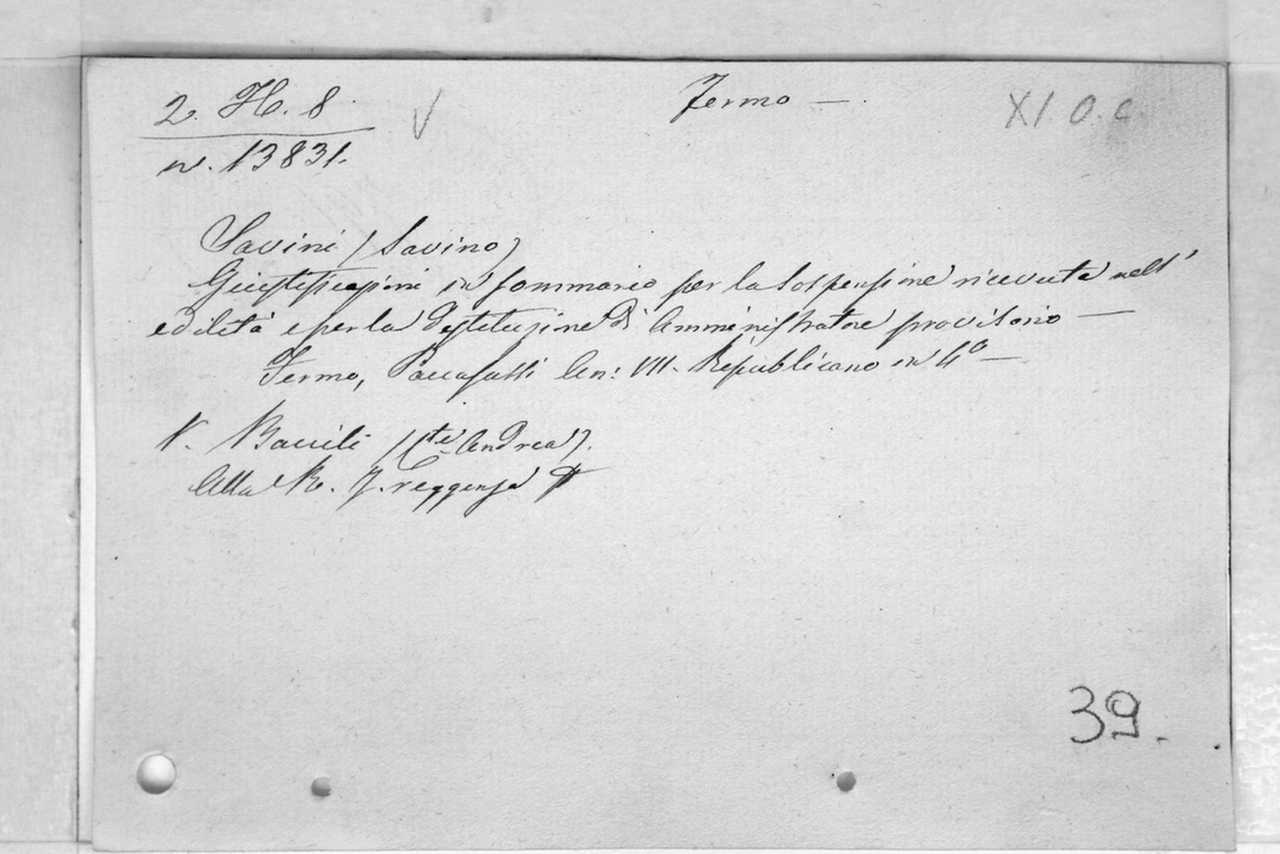 2. H. 8
Fermo —.
XI. O. c.
n. 13831.
Savini (Savino)
Giustificazioni in sommario per la sospensione ricevuta nell'
edilità e per la destituzione di Amministratore provisorio —
Fermo, Paccasassi An: VII. Republicano in 4º —
V. Bacili (Cte Andrea).
Alla R. J. reggenza
39.